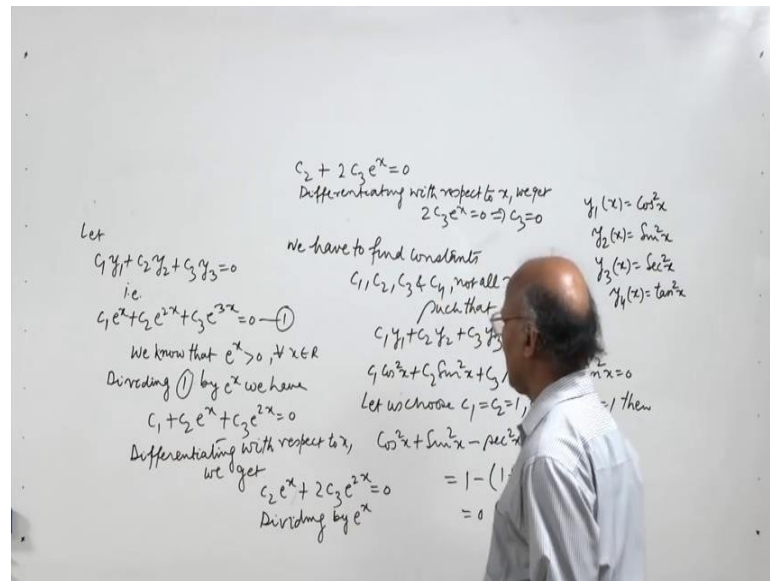 Let
C₁y₁+C₂y₂+C₃y₃=0
i.e.
C₁eˣ+C₂e²ˣ+C₃e³ˣ=0—①
We know that eˣ>0, ∀ x∈R
Dividing ① by eˣ we have
C₁+C₂eˣ+C₃e²ˣ=0
Differentiating with respect to x,
we get
C₂eˣ+2C₃e²ˣ=0
Dividing by eˣ
C₂+2C₃eˣ=0
Differentiating with respect to x, we get
2C₃eˣ=0⇒C₃=0
We have to find constants
C₁, C₂, C₃ & C₄, not all
such that
C₁y₁+C₂y₂+C₃y₃
C₁cos²x+C₂Sin²x+C₃ n²x=0
Let us choose C₁=C₂=1, =1 then
Cos²x+Sin²x-sec²x
=1-(1
=0
y₁(x)=Cos²x
y₂(x)=Sin²x
y₃(x)=Sec²x
y₄(x)=tan²x